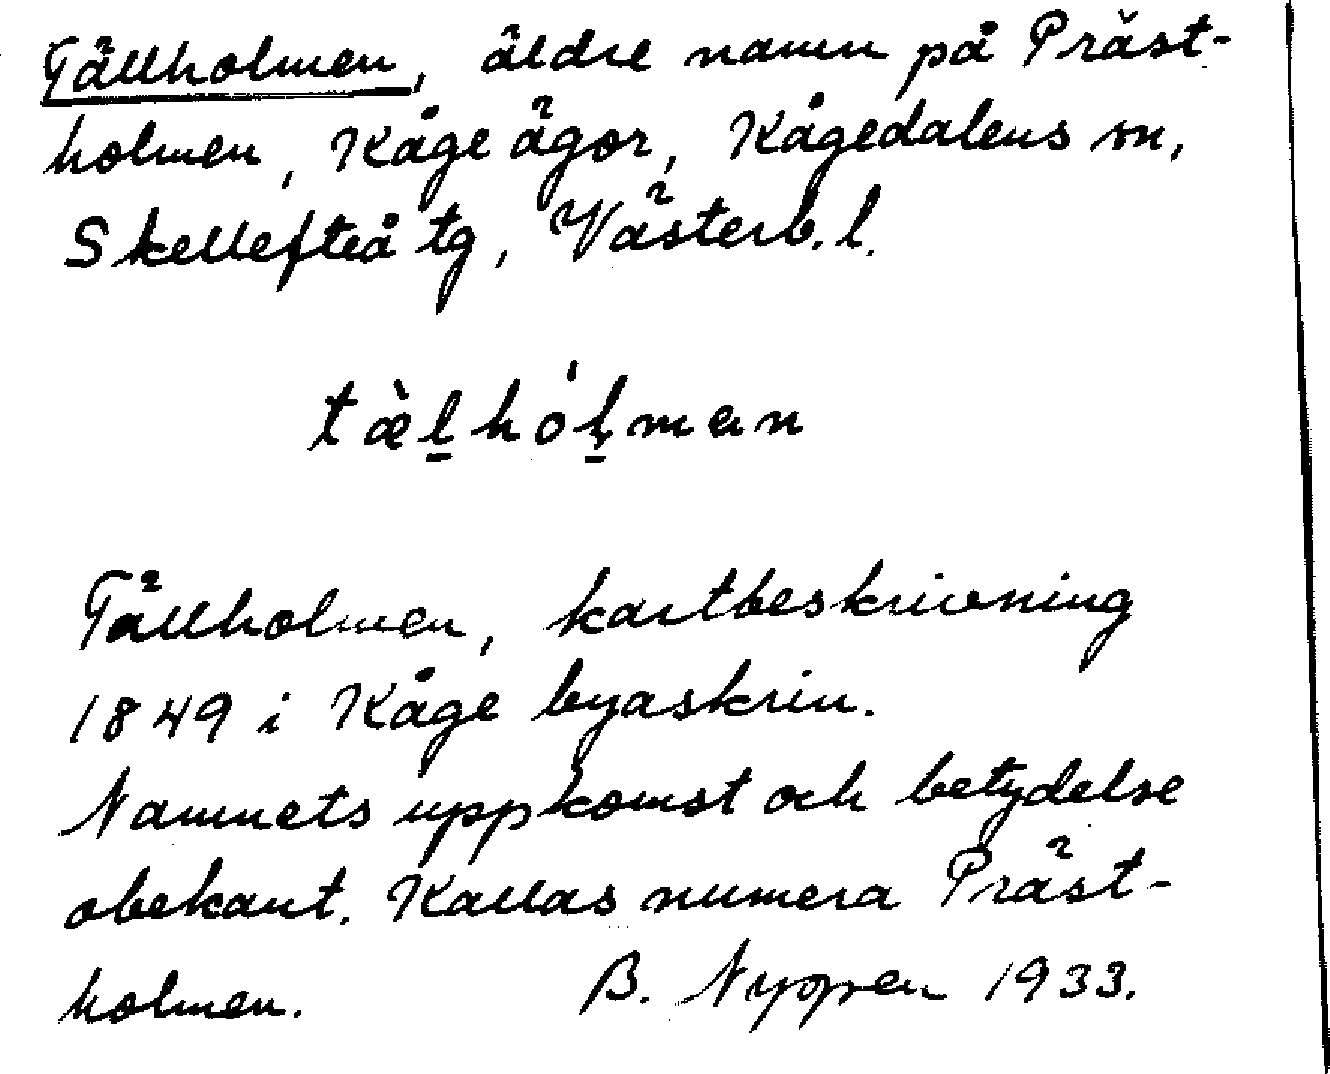 Tällholmen, äldre namn på Präst-
holmen, Kåge ägor, Kågedalens sn,
Skellefteå tg, Västerb. l.
tæ̀l̠hól̠̣mɐn
Tällholmen, kartbeskrivning
1849 i Kåge byaskrin.
Namnets uppkomst och betydelse
obekant. Kallas numera Präst-
holmen. B. Nyppen 1933.